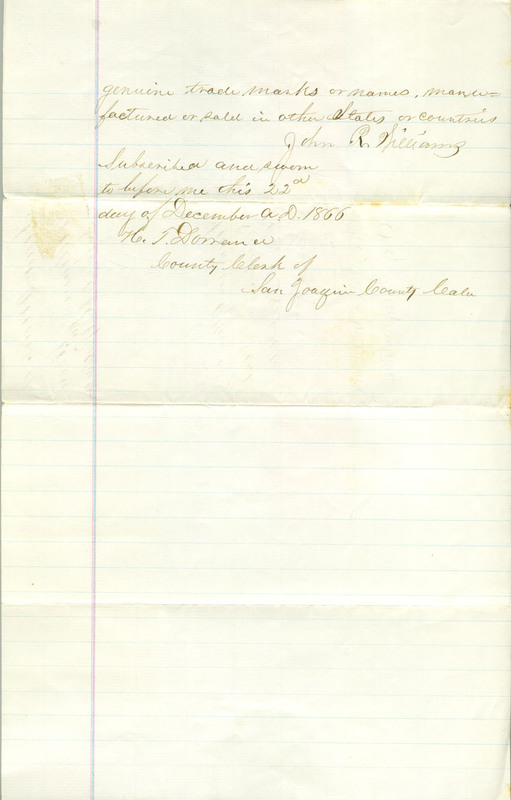 genuine trade marks or names, manu=
factured or sold in other States or countries
John R. Williams
Subscribed and sworn
to before me this 22d
day of December A.D. 1866
H. T. Dorrance
County Clerk of
San Joaquin County Cala